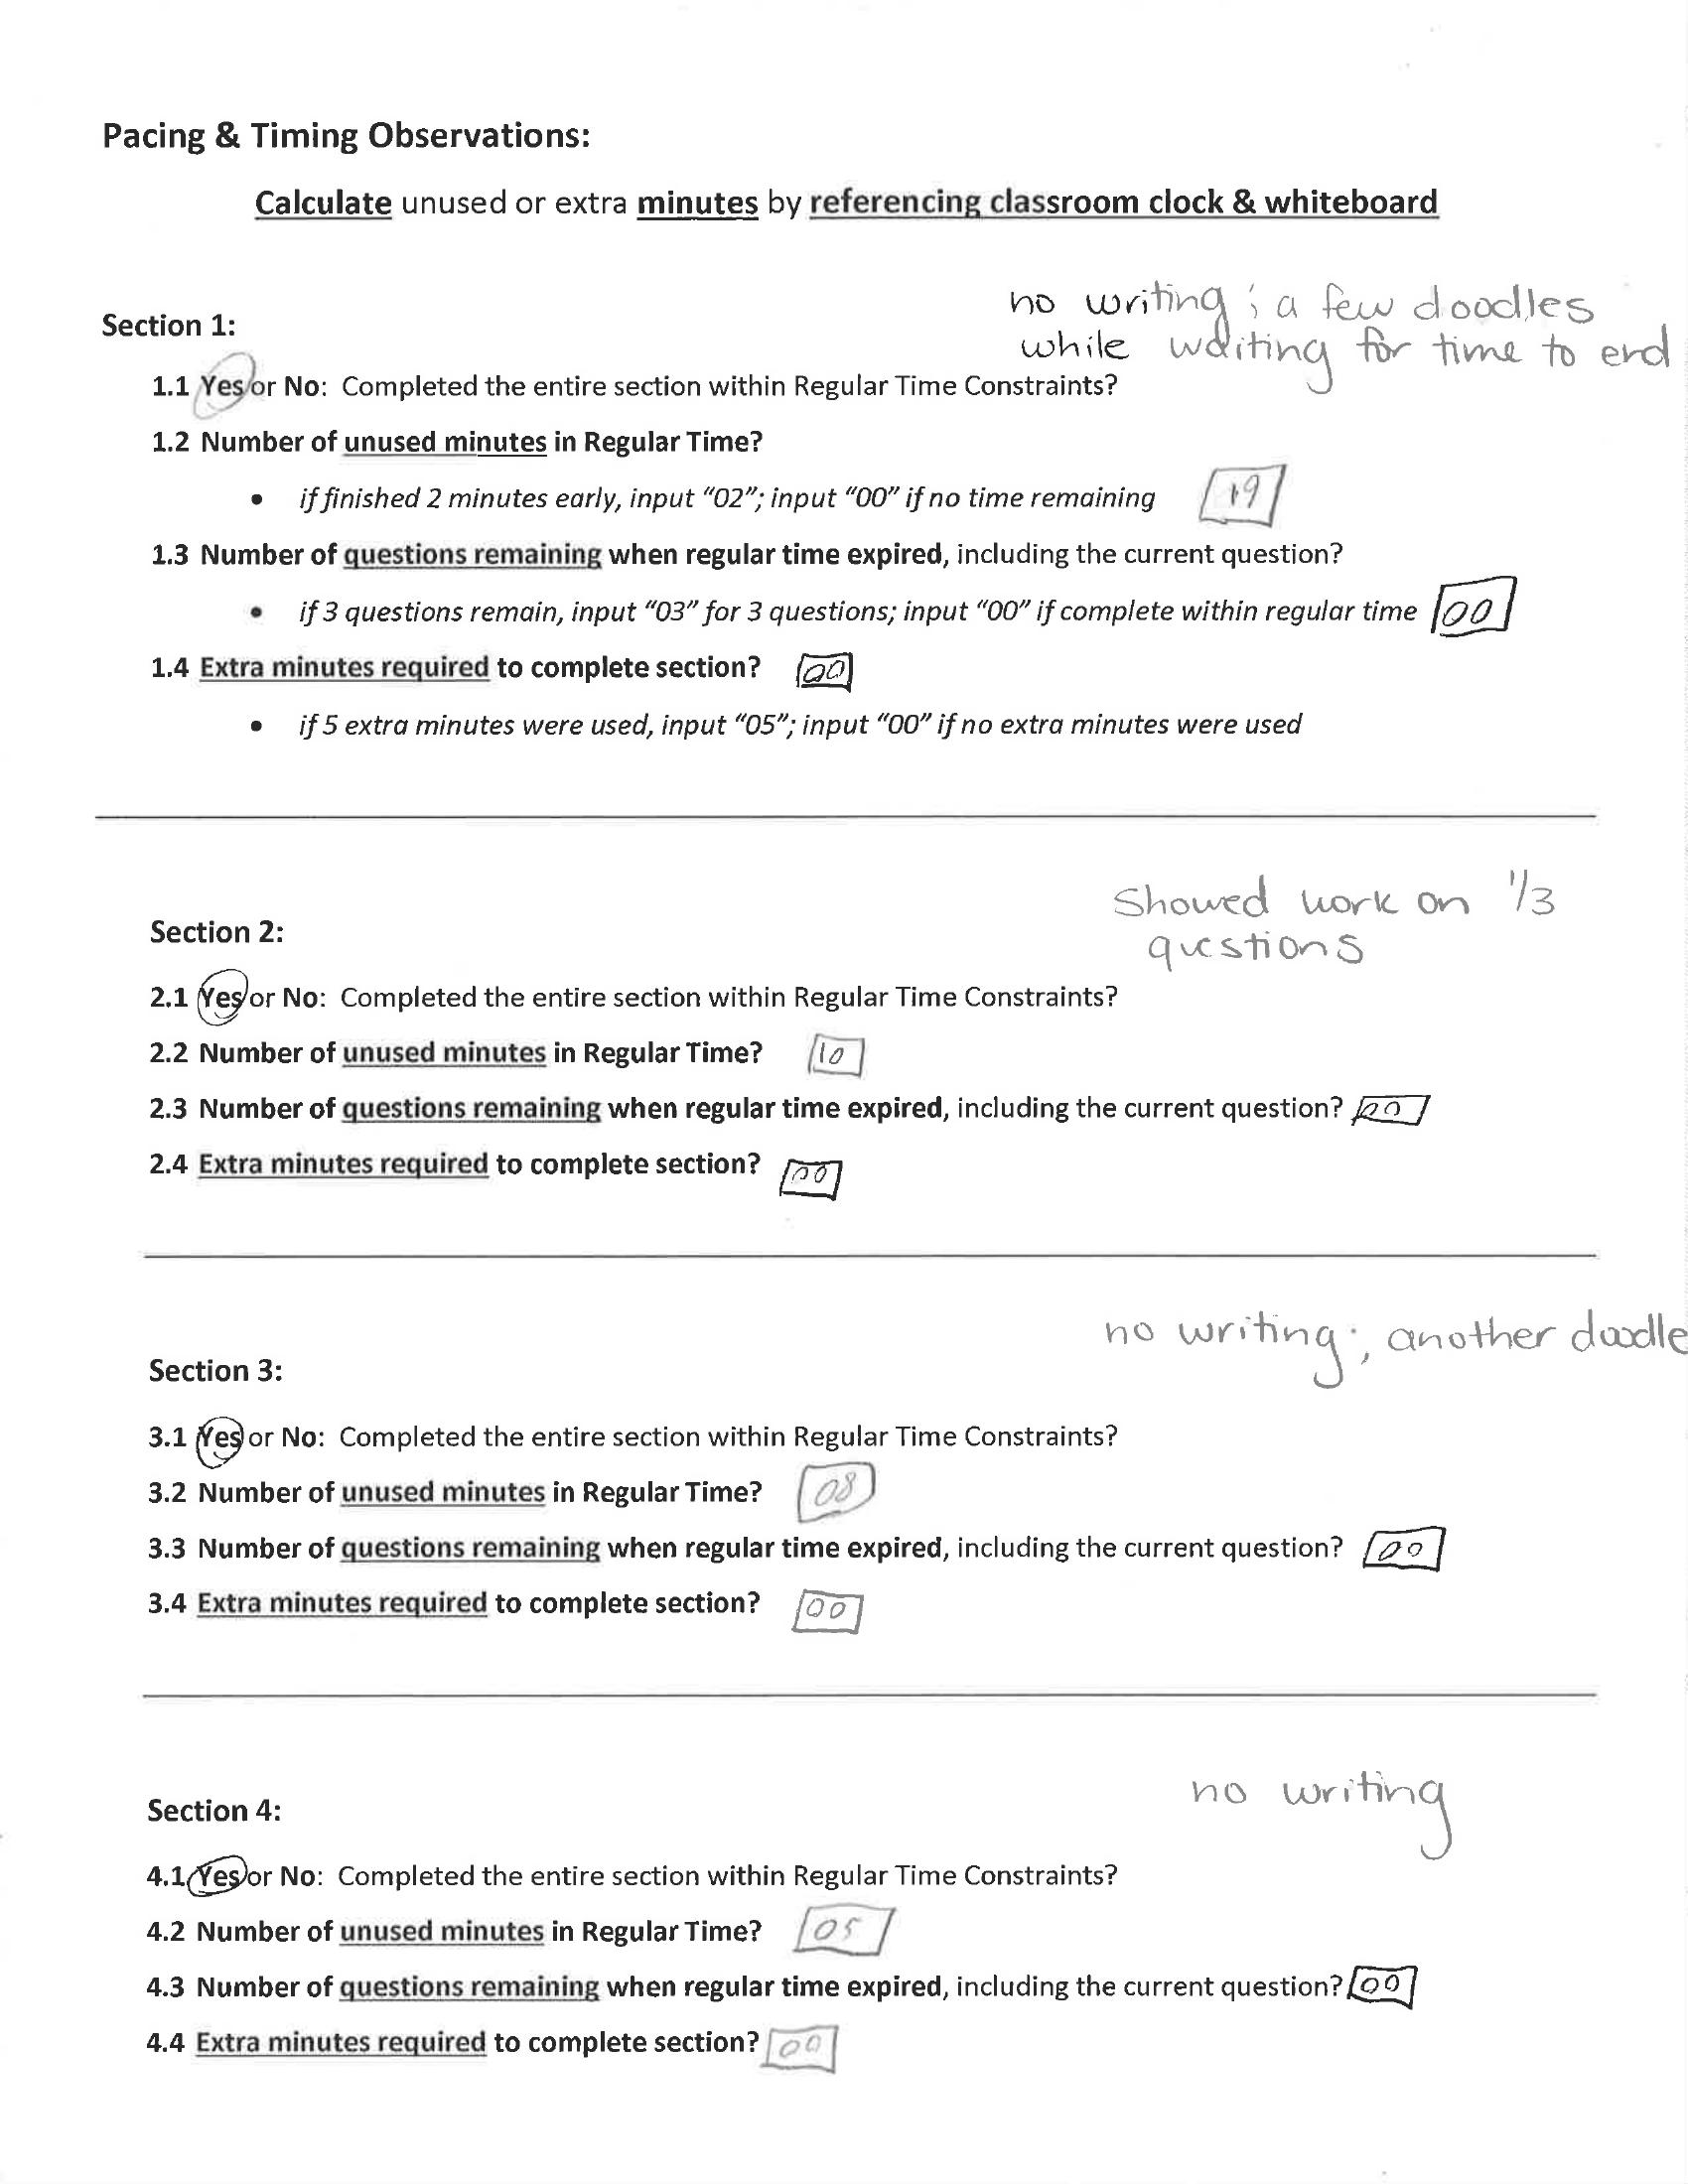 Pacing & Timing Observations:
Calculate unused or extra minutes by referencing classroom clock & whiteboard
no writing ; a few doodles
while waiting for time to end
Section 1:
1.1 Yes or No: Completed the entire section within Regular Time Constraints?
1.2 Number of unused minutes in Regular Time?
• if finished 2 minutes early, input “02”; input “00” if no time remaining 19
1.3 Number of questions remaining when regular time expired, including the current question?
• if 3 questions remain, input “03” for 3 questions; input “00” if complete within regular time 00
1.4 Extra minutes required to complete section? 00
• if 5 extra minutes were used, input “05”; input “00” if no extra minutes were used
Showed work on 1/3
questions
Section 2:
2.1 Yes or No: Completed the entire section within Regular Time Constraints?
2.2 Number of unused minutes in Regular Time? 10
2.3 Number of questions remaining when regular time expired, including the current question? 00
2.4 Extra minutes required to complete section? 00
no writing ; another doodle
Section 3:
3.1 Yes or No: Completed the entire section within Regular Time Constraints?
3.2 Number of unused minutes in Regular Time? 08
3.3 Number of questions remaining when regular time expired, including the current question? 00
3.4 Extra minutes required to complete section? 00
no writing
Section 4:
4.1 Yes or No: Completed the entire section within Regular Time Constraints?
4.2 Number of unused minutes in Regular Time? 05
4.3 Number of questions remaining when regular time expired, including the current question? 00
4.4 Extra minutes required to complete section? 00